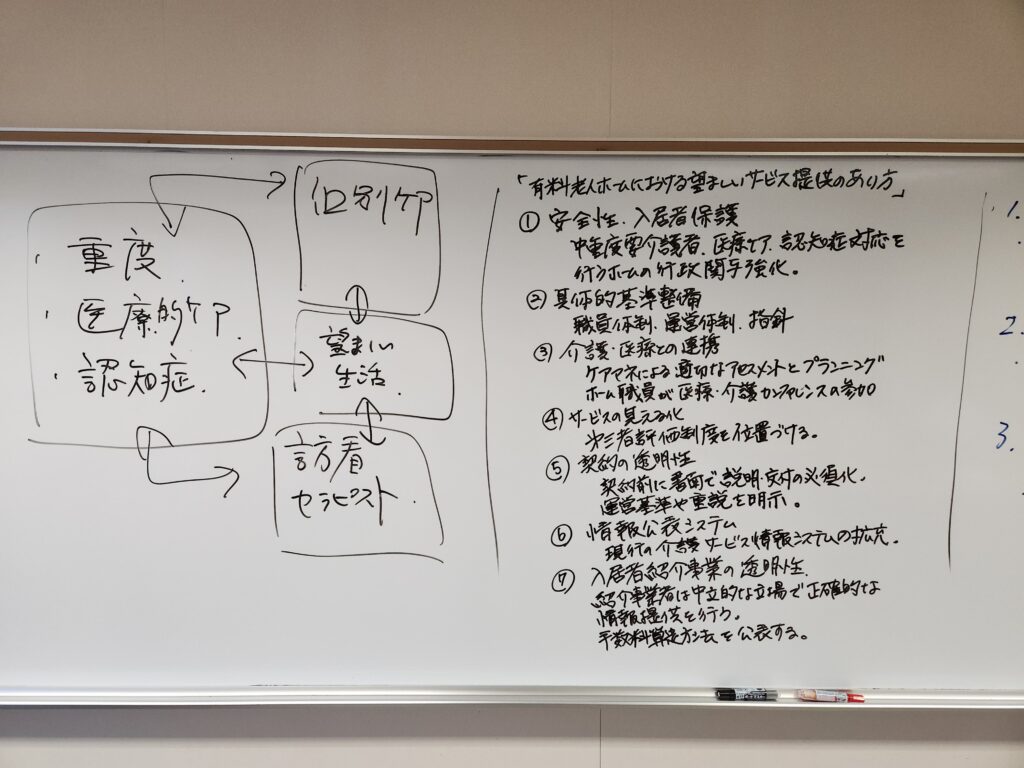 ・重度
・医療的ケア
・認知症
個別ケア
望ましい
生活
訪看
セラピスト
「有料老人ホームにおける望ましいサービス提供のあり方」
① 安全性、入居者保護
中重度要介護者、医療ケア、認知症対応を
行うホームの行政関与強化。
② 具体的基準整備
職員体制、運営体制、指針
③ 介護・医療との連携
ケアマネによる適切なアセスメントとプランニング
ホーム職員が医療・介護カンファレンスの参加
④ サービスの見える化
第三者評価制度を位置づける。
⑤ 契約の透明性
契約前に書面で説明・交付の必須化。
運営基準や重説を明示。
⑥ 情報公表システム
現行の介護サービス情報システムの拡充。
⑦ 入居者紹介事業の透明性
紹介事業者は中立的な立場で正確的な
情報提供を行う。
手数料算定方法を公表する。
1.
2.
3.